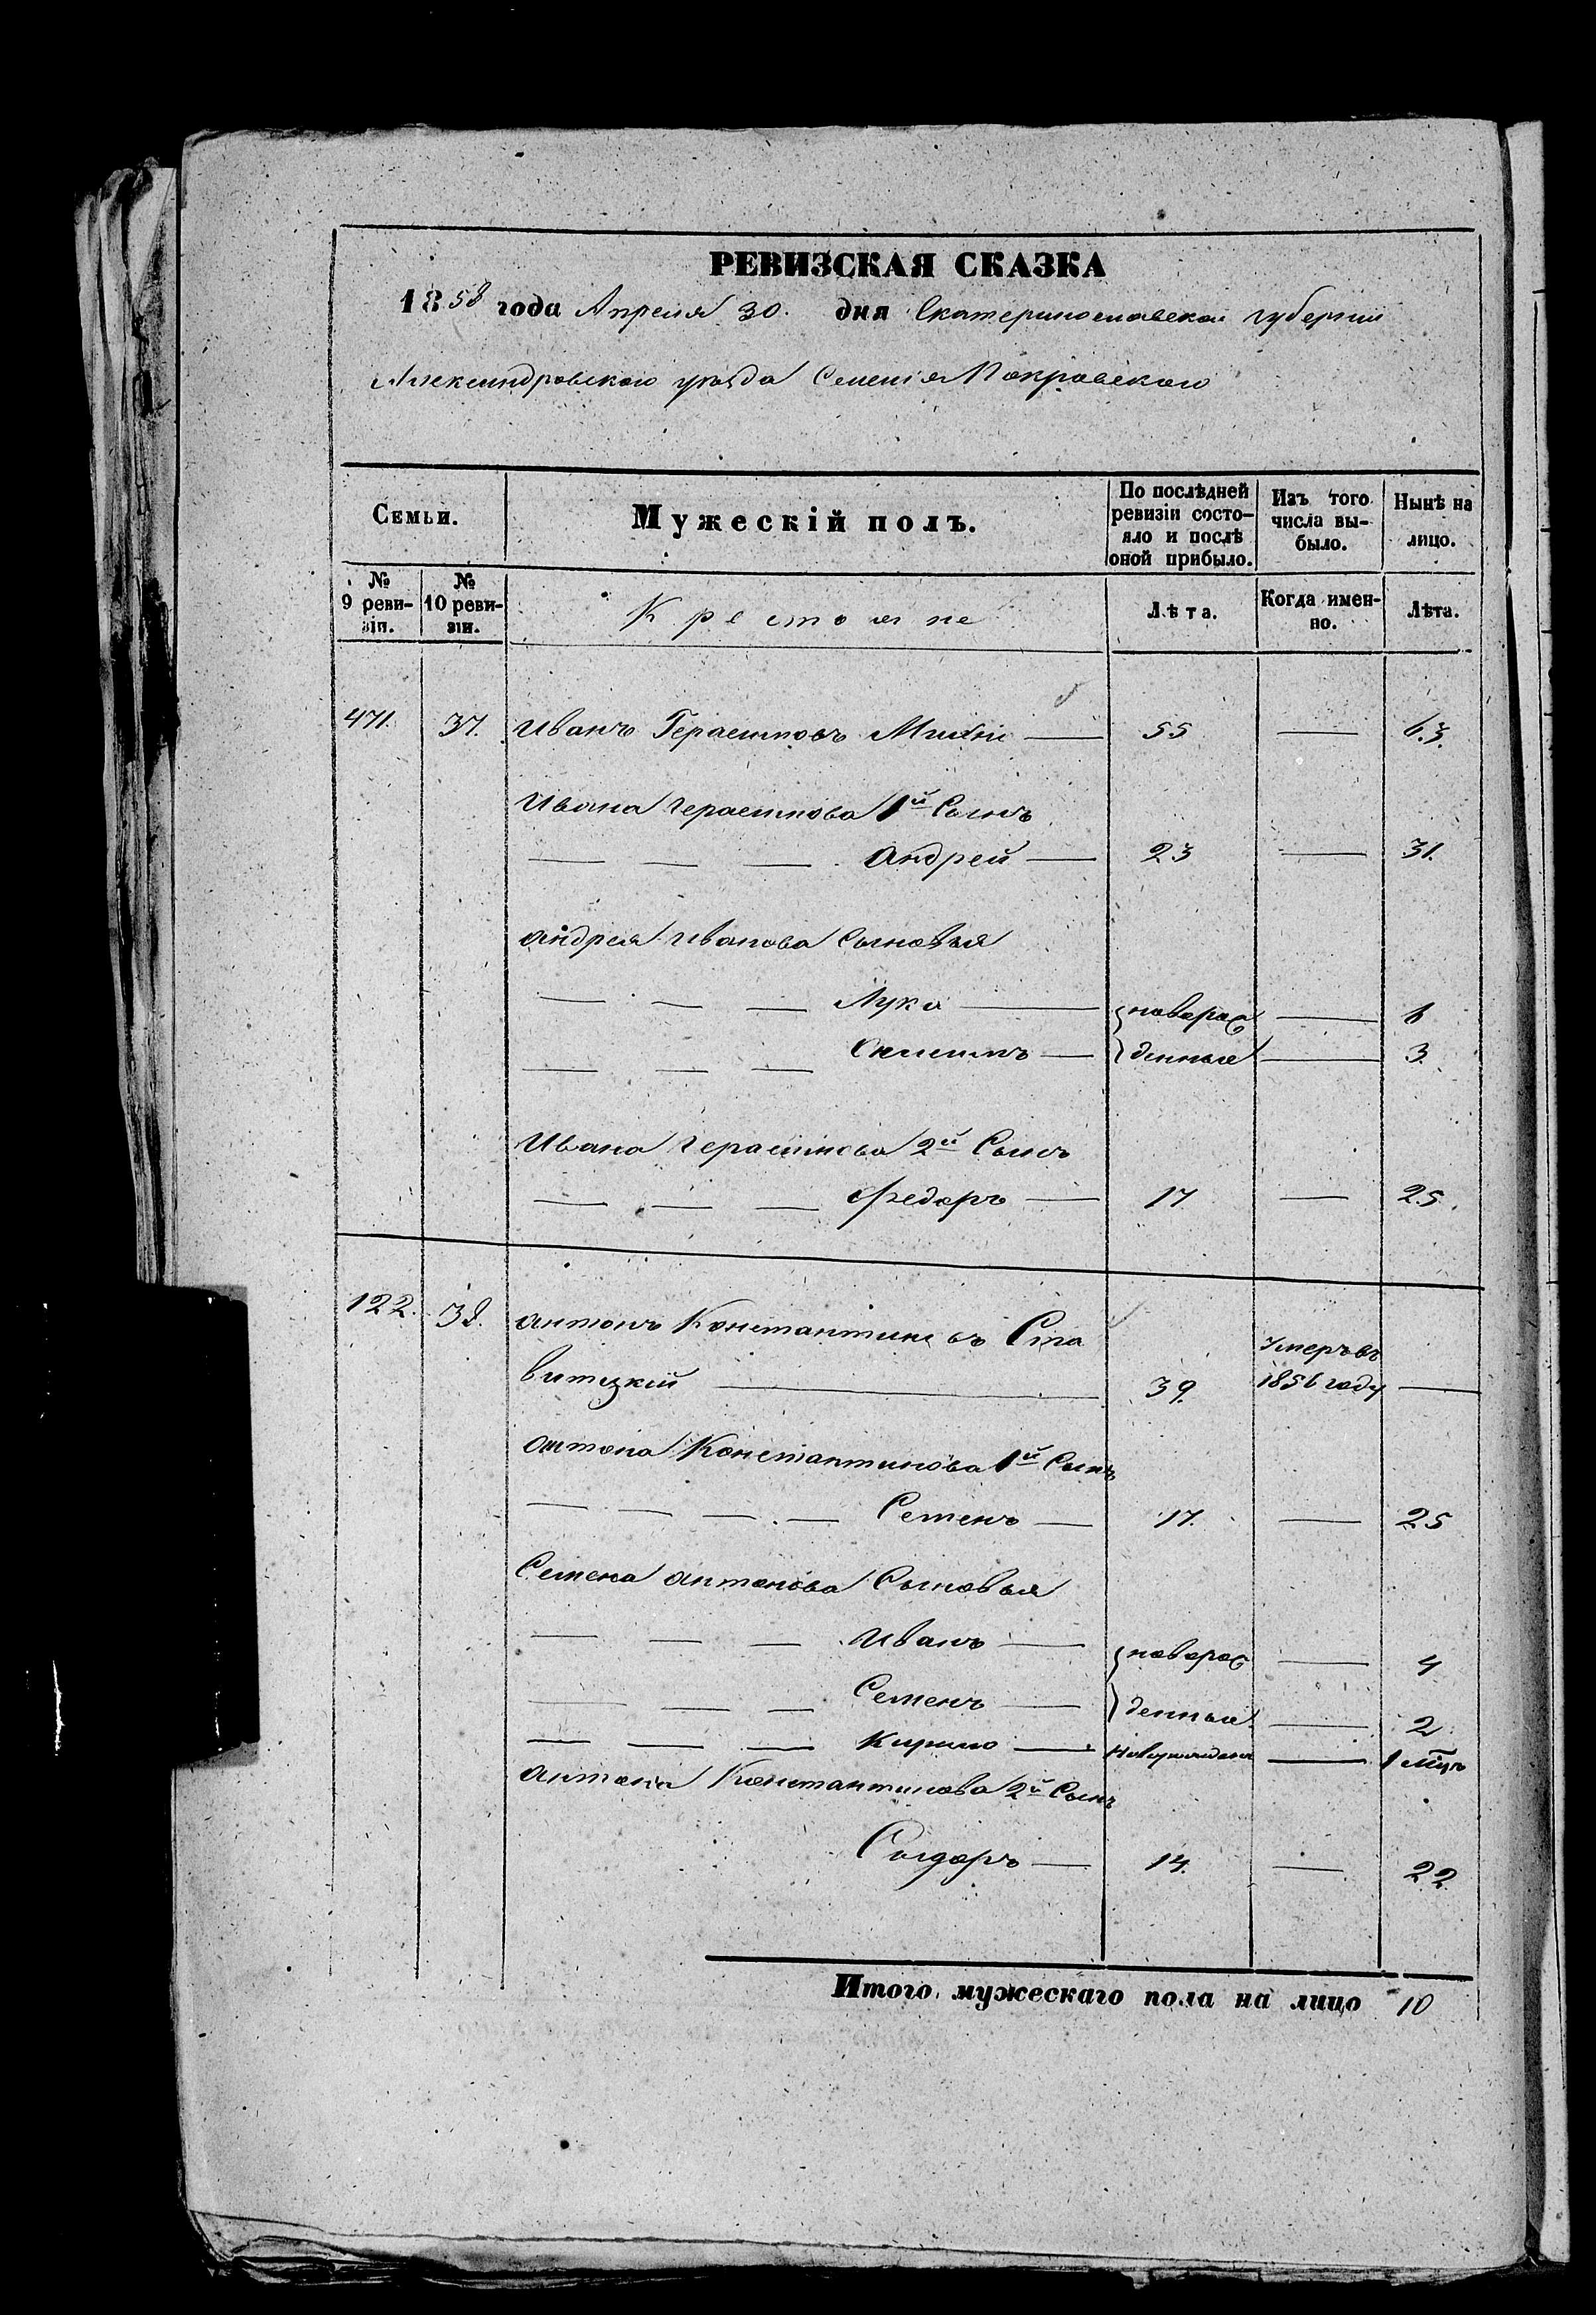 РЕВИЗСКАЯ СКАЗКА
1858 года Апреля 30. дня Екатеринославской губернии
Александровского уѣзда Селенія Покровского
Семьи.
Мужескій полъ.
По послѣдней ревизіи состо-
яло и послѣ оной прибыло.
Изъ того числа вы-
было.
Нынѣ на лицо.
№ 9 реви-
зіи.
№ 10 реви-
зіи.
Крестояне
Лѣта.
Когда имен-
но.
Лѣта.
471. 37. Иванъ Герасимовъ — 55 — 63.
Ивана Герасимова 1й Сынъ
— — — Андрей — 23 — 31.
Андрея Иванова Сыновья
— — — Лука — новорож — 6
— — — — денные — 3.
Ивана Герасимова 2й Сынъ
— — — Федоръ — 17 — 25.
122. 38. Антонъ Константиновъ Ста
витцкій — 39. Умеръ въ 1856 году —
Антона Константинова 1й Сынъ
— — — Семенъ — 17. — 25
Семена Антонова Сыновья
— — — Иванъ — новорож — 4
— — — Семенъ — денные — 2
— — — Кирило — Новорожден — 1 мцъ
Антона Константинова 2й Сынъ
Сыдоръ — 14. — 22.
Итого мужескаго пола на лицо 10